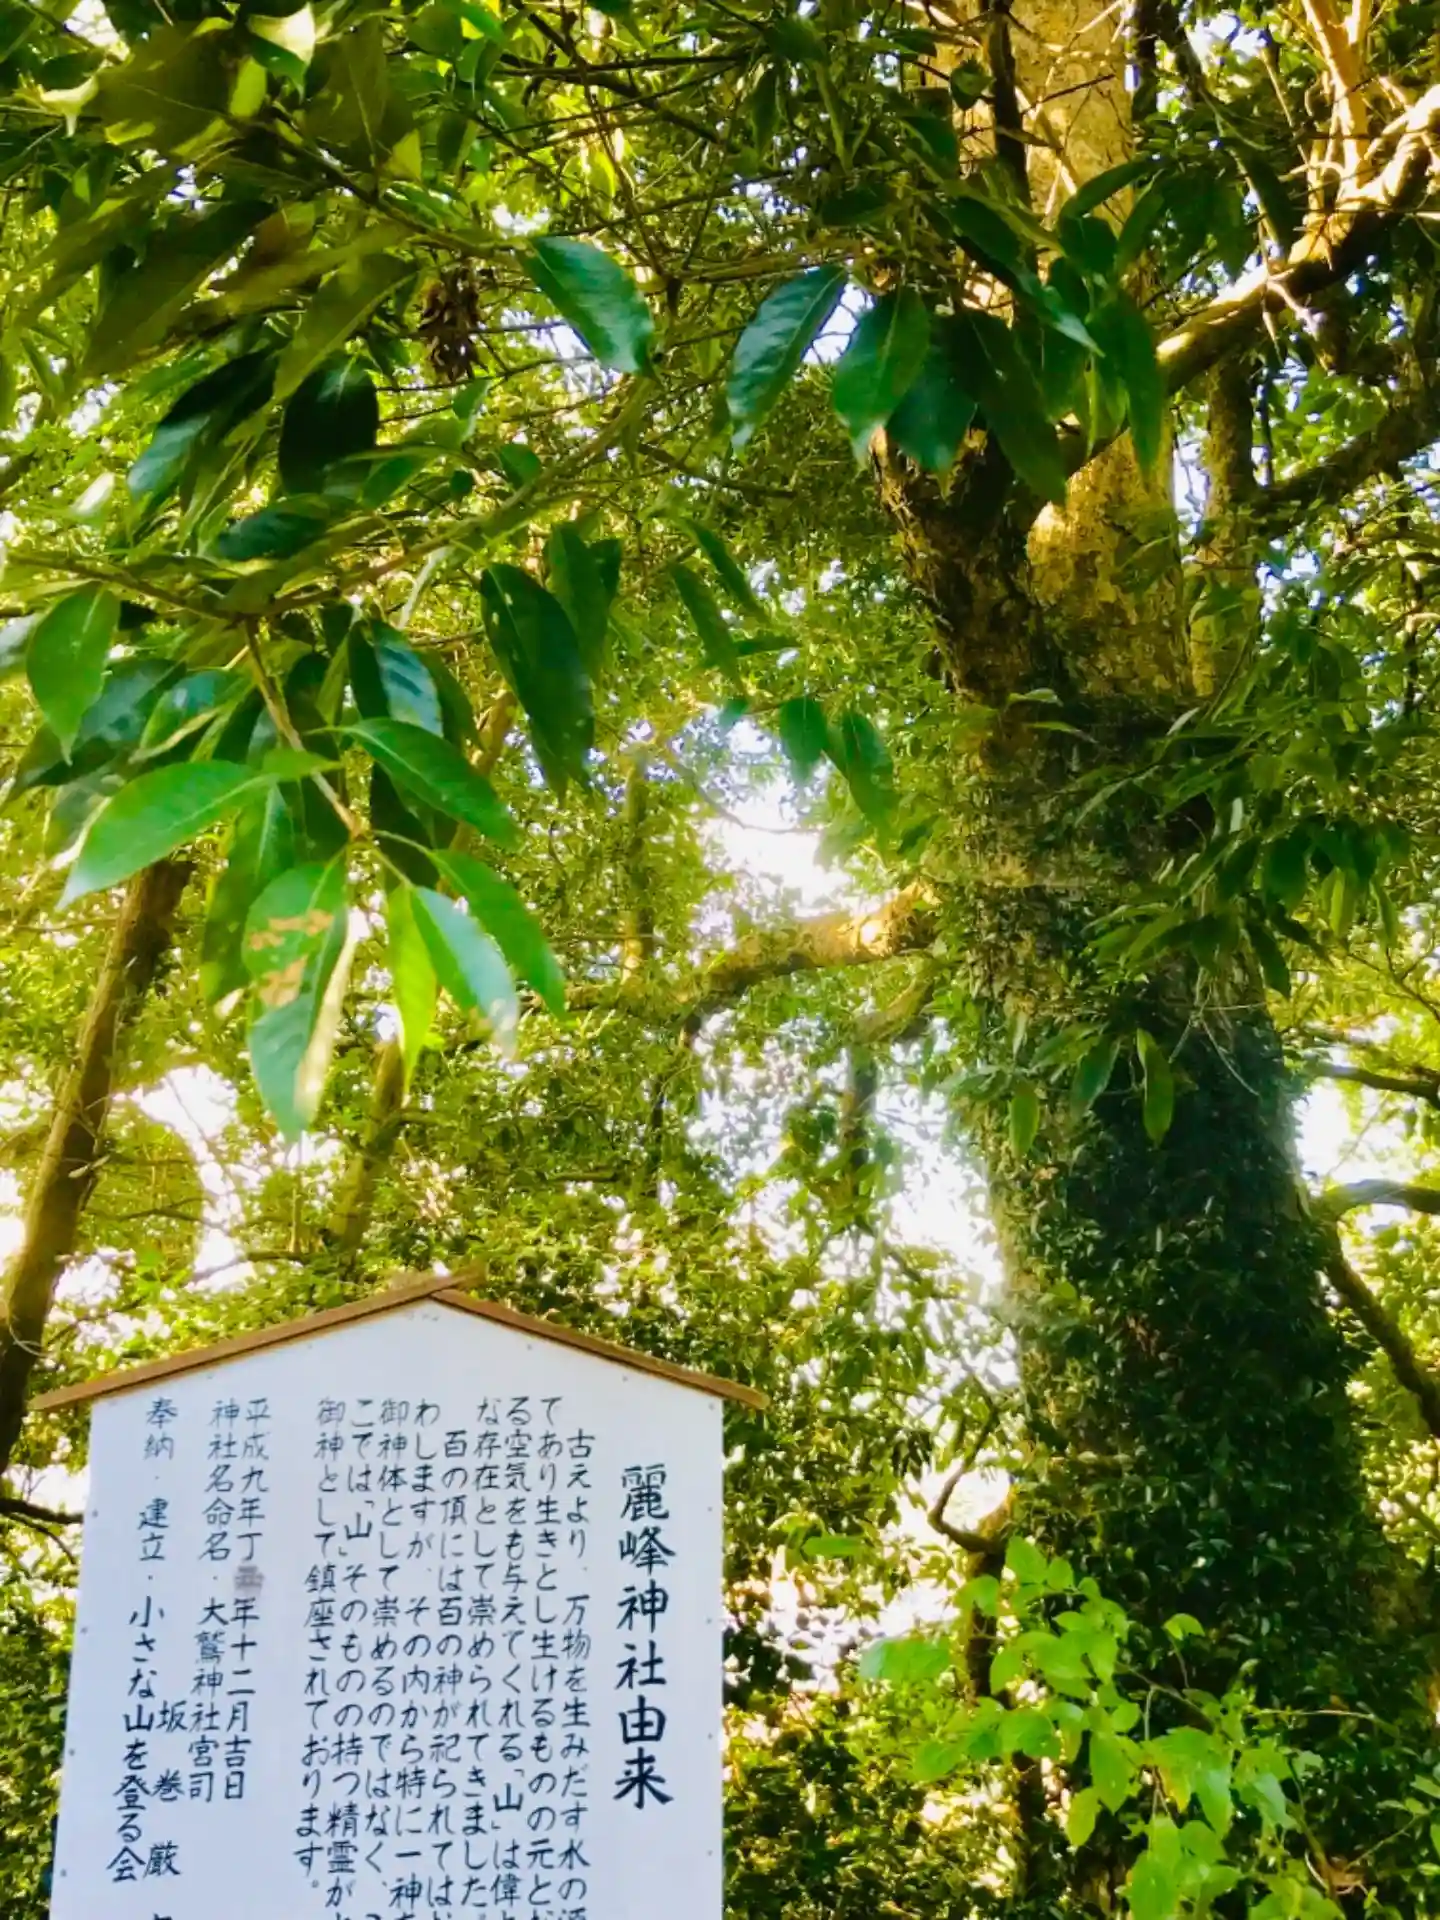 麗峰神社由来
古えより、万物を生みだす水の源
であり生きとし生けるものの元とな
る空気をも与えてくれる「山」は偉大
な存在として崇められてきました
百の頂には百の神が祀られては
わしますが、その内から特に一神
御神体として崇めるのではなく、
こでは「山」そのものの持つ精霊が
御神として鎮座されております。
平成九年丁 年十二月吉日
神社名命名・大鷲神社宮司
坂巻 厳
奉納・建立・小さな山を登る会